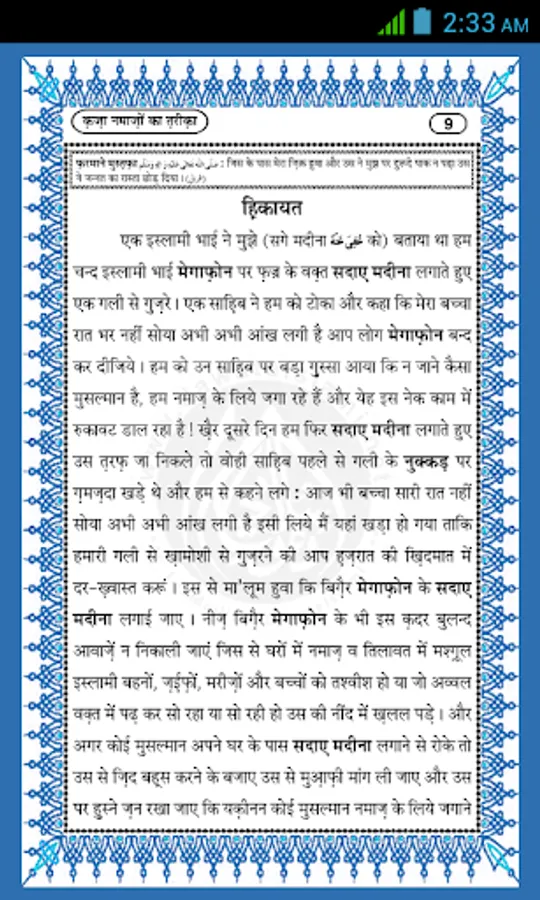 2:33 AM
क़ज़ा नमाज़ों का त़रीक़ा
9
फ़रमाने मुस्त़फ़ा صلى الله تعالى عليه واله وسلم : जिस के पास मेरा ज़िक्र हुवा और उस ने मुझ पर दुरूदे पाक न पढ़ा उस
ने जन्नत का रास्ता छोड़ दिया । (طبرانی)
ह़िकायत
एक इस्लामी भाई ने मुझे (सगे मदीना عُفِيَ عَنْهُ को) बताया था हम
चन्द इस्लामी भाई मेगाफ़ोन पर फ़ज्र के वक़्त सदाए मदीना लगाते हुए
एक गली से गुज़रे । एक साह़िब ने हम को टोका और कहा कि मेरा बच्चा
रात भर नहीं सोया अभी अभी आंख लगी है आप लोग मेगाफ़ोन बन्द
कर दीजिये । हम को उन साह़िब पर बड़ा ग़ुस्सा आया कि न जाने कैसा
मुसल्मान है, हम नमाज़ के लिये जगा रहे हैं और येह इस नेक काम में
रुकावट डाल रहा है ! ख़ैर दूसरे दिन हम फिर सदाए मदीना लगाते हुए
उस त़रफ़ जा निकले तो वोही साह़िब पहले से गली के नुक्कड़ पर
ग़मज़दा खड़े थे और हम से कहने लगे : आज भी बच्चा सारी रात नहीं
सोया अभी अभी आंख लगी है इसी लिये मैं यहां खड़ा हो गया ताकि
हमारी गली से ख़ामोशी से गुज़रने की आप ह़ज़रात की ख़िदमात में
दर-ख़्वास्त करूं । इस से मा'लूम हुवा कि बिग़ैर मेगाफ़ोन के सदाए
मदीना लगाई जाए । नीज़ बिग़ैर मेगाफ़ोन के भी इस क़दर बुलन्द
आवाज़ें न निकाली जाएं जिस से घरों में नमाज़ व तिलावत में मश्ग़ूल
इस्लामी बहनों, ज़ई़फ़ों, मरीज़ों और बच्चों को तश्वीश हो या जो अव्वल
वक़्त में पढ़ कर सो रहा या सो रही हो उस की नींद में ख़लल पड़े । और
अगर कोई मुसल्मान अपने घर के पास सदाए मदीना लगाने से रोके तो
उस से ज़िद बह़्स करने के बजाए उस से मुआ़फ़ी मांग ली जाए और उस
पर हुस्ने ज़न रखा जाए कि यक़ीनन कोई मुसल्मान नमाज़ के लिये जगाने